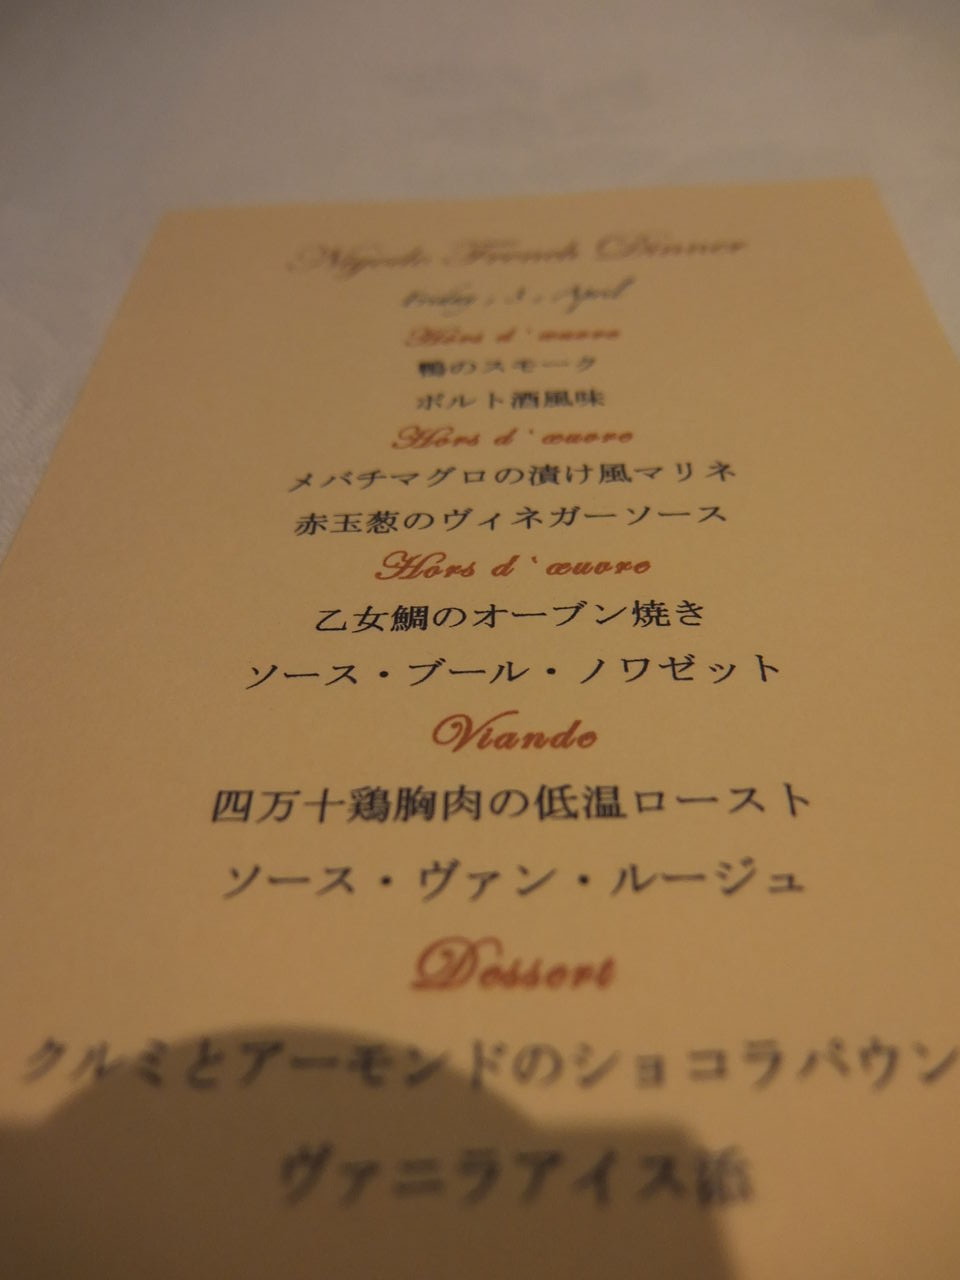 French Dinner
April
Hors d`œuvre
鴨のスモーク
ポルト酒風味
Hors d`œuvre
メバチマグロの漬け風マリネ
赤玉葱のヴィネガーソース
Hors d`œuvre
乙女鯛のオーブン焼き
ソース・ブール・ノワゼット
Viande
四万十鶏胸肉の低温ロースト
ソース・ヴァン・ルージュ
Dessert
クルミとアーモンドのショコラパウン
ヴァニラアイス添